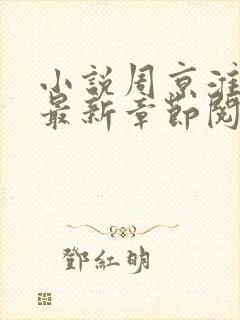 小說周京淮
最新章節閱
鄧紅明